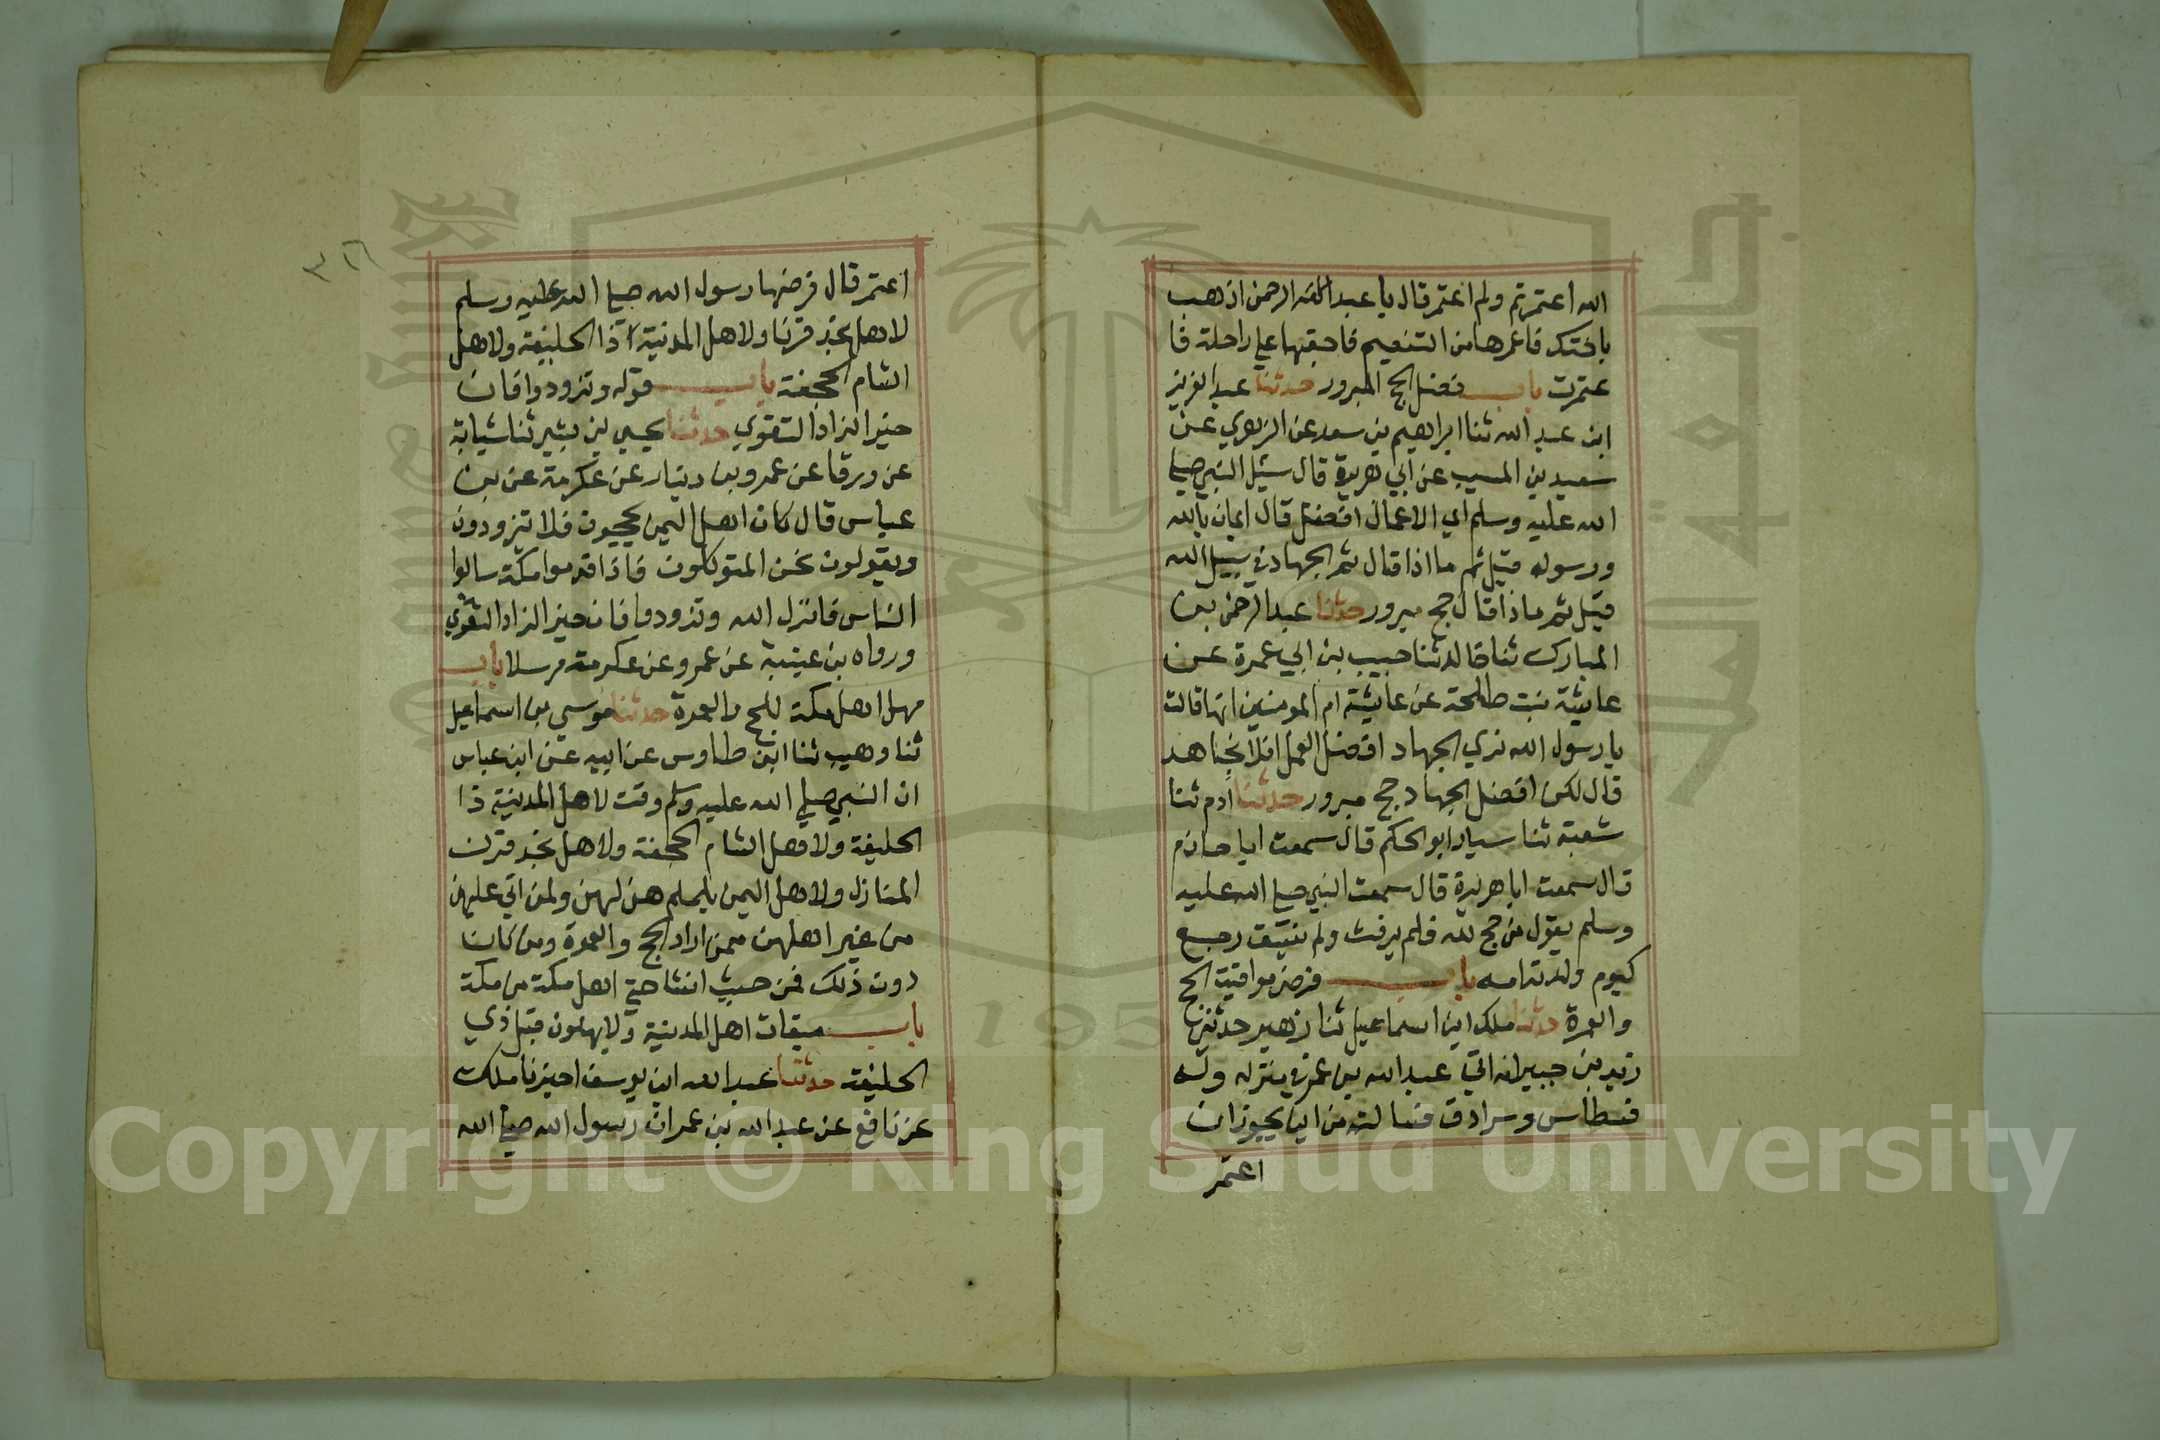 الله اعتمرتم ولم اعتمر قال يا عبد الرحمن اذهب
باختك فاعمرها من التنعيم فاحقبها علي راحلة فا
عتمرت باب فضل الحج المبرور حدثنا عبد العزيز
ابن عبد الله ثنا ابراهيم بن سعد عن الزهري عن
سعيد بن المسيب عن ابي هريرة قال سئل النبي صلي
الله عليه وسلم اي الاعمال افضل قال ايمان بالله
ورسوله قيل ثم ما اذا قال ثم الجهاد في سبيل الله
قيل ثم ماذا قال حج مبرور حدثنا عبد الرحمن بن
المبارك ثنا خالد ثنا حبيب بن ابي عمرة عن
عايشة بنت طلحة عن عايشة ام المومنين انها قالت
يا رسول الله نري الجهاد افضل العمل افلا نجاهد
قال لكن افضل الجهاد حج مبرور حدثنا ادم ثنا
شعبة ثنا سيار ابو الحكم قال سمعت ابا حازم
قال سمعت ابا هريرة قال سمعت النبي صلي الله عليه
وسلم يقول من حج لله فلم يرفث ولم يفسق رجع
كيوم ولدته امه باب فرض مواقيت الحج
والعمرة حدثنا ملك ابن اسماعيل ثنا زهير حدثني
زيد بن جبير انه اتي عبد الله بن عمر في منزله وله
فسطاس وسرادق فسالته من اين يجوز ان
اعتمر
٣٢٦
اعتمر قال فرضها رسول الله صلي الله عليه وسلم
لاهل نجد قرنا ولاهل المدينة ذا الحليفة ولاهل
الشام الجحفة باب قوله وتزودوا فان
خير الزاد التقوي حدثنا يحيي بن بشير ثنا شبابة
عن ورقا عن عمرو بن دينار عن عكرمة عن بن
عباس قال كان اهل اليمن يحجون فلا تزودون
ويقولون نحن المتوكلون فاذا قدموا مكة سالوا
الناس فانزل الله وتزودوا فان خير الزاد التقوي
ورواه بن عيينة عن عمرو عن عكرمة مرسلا باب
مهل اهل مكة للحج والعمرة حدثنا موسي بن اسماعيل
ثنا وهيب ثنا ابن طاوس عن ابيه عن ابن عباس
ان النبي صلي الله عليه وسلم وقت لاهل المدينة ذا
الحليفة ولاهل الشام الجحفة ولاهل نجد قرن
المنازل ولاهل اليمن يلملم هن لهن ولمن اتي عليهن
من غير اهلهن ممن اراد الحج والعمرة ومن كان
دون ذلك فمن حيث انشا حتي اهل مكة من مكة
باب ميقات اهل المدينة ولا يهلون قبل ذي
الحليفة حدثنا عبد الله ابن يوسف اخبرنا ملك
عن نافع عن عبد الله بن عمر ان رسول الله صلي الله
Copyright © King Saud University
195